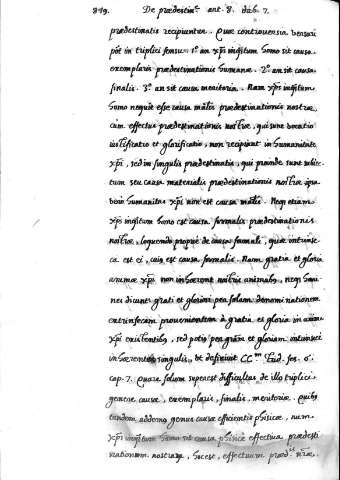 819. De prædestin.e art. 8. dub. 7.
prædestinatis recipiuntur. Quæ controversia versari
pót in triplici sensu. 1.º an xps inqtum homo sit causa
exemplaris prædestinationis humanæ. 2.º an sit causa
finalis. 3.º an sit causa meritoria. Nam xps inqtum
homo nequit esse causa mãlis prædestinationis nostræ,
cùm effectus prædestinationis nostræ, qui sunt vocatio
iustificatio et glorificatio, non recipiant in humanitate
xpi, sed in singulis prædestinatis, qui proinde sunt subiec-
tum seu causa materialis prædestinationis nostræ ipsa
humanitas xpi non est causa mãlis. Neq etiam
xps inqtum homo est causa formalis prædestinationis
nostræ, loquendo propriè de causa formali, quæ intrinse-
ca est ei, cuius est causa formalis. Nam gratia et gloria
animæ xpi non inhærent nostris animabus, neq homi-
nes dicunt grati et gloriosi per solam denominationem
extrinsecam provenientem à gratia et gloria in animâ
xpi existentibus, sed potiùs per grãm et gloriam intrinsecè
inhærentem singulis, ut definivit CC.m Trid. ses. 6.
cap. 7. Quare solum superest difficultas de illo triplici
genere causæ, exemplaris, finalis, meritoriæ. Quibus
tandem addemus genus causæ efficientis phisicæ, num
xps inqtum homo sit causa phisicè effectiva prædesti
nationem nostram, hoc est, effectuum præd.is nræ.